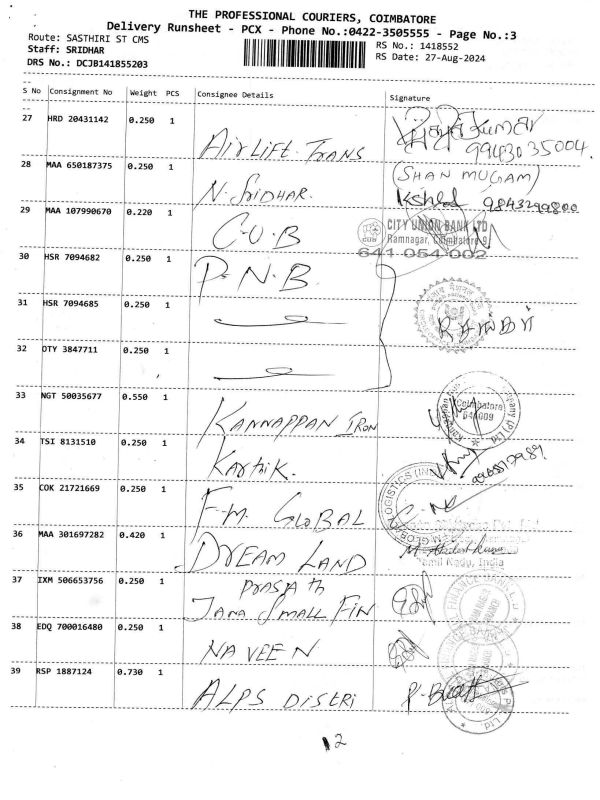 THE PROFESSIONAL COURIERS, COIMBATORE
Delivery Runsheet - PCX - Phone No.:0422-3505555 - Page No.:3
Route: SASTHIRI ST CMS
RS No.: 1418552
Staff: SRIDHAR
RS Date: 27-Aug-2024
DRS No.: DCJB141855203
S No Consignment No Weight PCS Consignee Details Signature
27 HRD 20431142 0.250 1 AIRLIFT TRANS
99430 35004.
28 MAA 650187375 0.250 1 N. SRIDHAR. (SHAN MUGAM)
9843299800
29 MAA 107990670 0.220 1 C.U.B
CITY UNION BANK LTD
Ramnagar, Coimbatore-9
641-054-002
30 HSR 7094682 0.250 1 P.N.B.
31 HSR 7094685 0.250 1
32 OTY 3847711 0.250 1
33 NGT 50035677 0.550 1 KANNAPPAN IRON
Coimbatore
641009
34 TSI 8131510 0.250 1 Karthik.
35 COK 21721669 0.250 1 F.M. GLOBAL
36 MAA 301697282 0.420 1 DREAM LAND
Tamil Nadu, India
37 IXM 506653756 0.250 1 PRASATH
JANA SMALL FIN
38 EDQ 700016480 0.250 1 NAVEEN
39 RSP 1887124 0.730 1 ALPS DISTRI
12